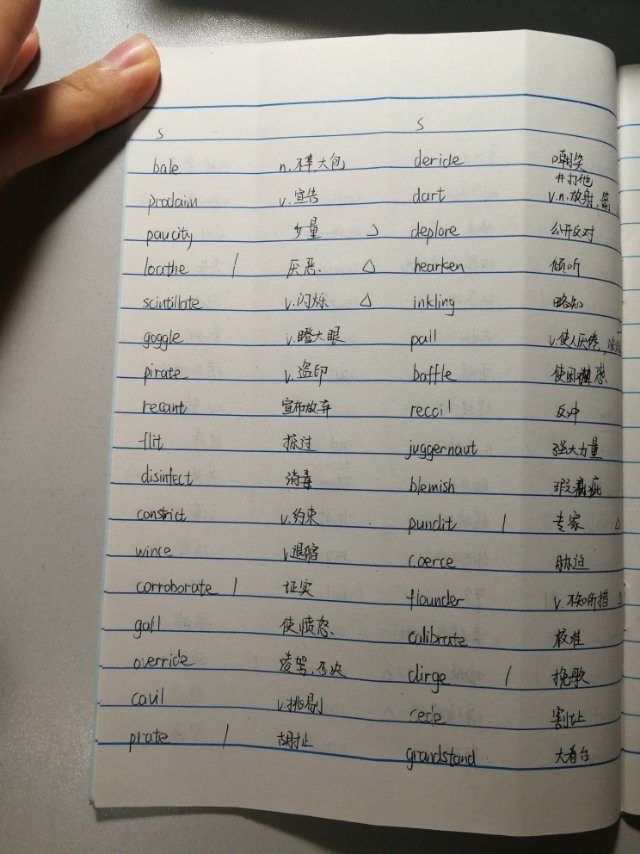 S S
bale n. 大包 deride 嘲笑
proclaim v. 宣告 dart v.n. 放射, 投掷
paucity 少量 △ deplore 公开反对
loathe / 厌恶 △ hearken 倾听
scintillate v. 闪烁 △ inkling 略知
goggle v. 瞪大眼 pall v. 使人厌倦,
pirate v. 盗印 baffle 使困惑
recant 宣布放弃 recoil 反冲
flit 掠过 juggernaut 强大力量
disinfect 消毒 blemish 瑕疵
constrict v. 约束 pundit / 专家 △
wince v. 退缩 coerce 胁迫
corroborate / 证实 flounder v. 不知所措 △
gall 使愤怒 calibrate 校准
override 凌驾, 否决 dirge / 挽歌
cavil v. 挑剔 cede 割让
prate / 胡扯 grandstand 大看台